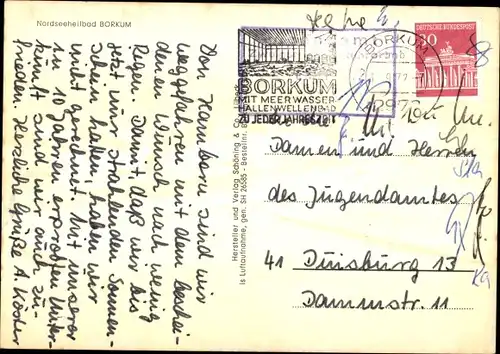 Nordseeheilbad BORKUM
Von Hamborn sind wir
weggefahren mit dem beschei-
denen Wunsch nach wenig
Regen. Damit, daß wir bis
jetzt nur strahlenden Sonnen-
schein hatten, haben wir
nicht gerechnet. Mit unserer
in 10 Jahren erprobten Unter-
kunft sind wir auch zu-
frieden. Herzliche Grüße A. Köster
Hersteller und Verlag Schöning & Co
ls Luftaufnahme, gen. SH 26585 - Bestellnr.
BORKUM
MIT MEERWASSER
HALLENWELLENBAD
ZU JEDER JAHRESZEIT
BORKUM
DEUTSCHE BUNDESPOST
Damen und Herren
des Jugendamtes
41 Duisburg 13
Dammstr. 11